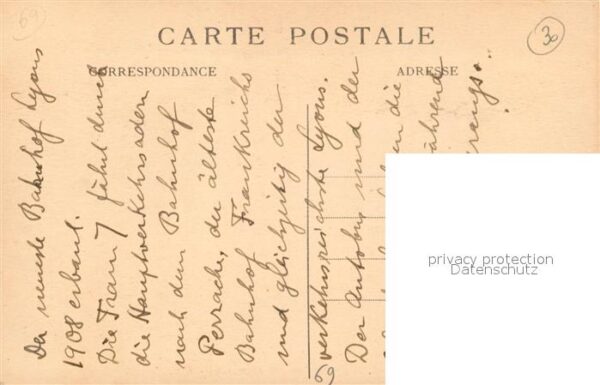 69
30
CARTE POSTALE
CORRESPONDANCE
ADRESSE
Der neueste Bahnhof Lyons
1908 erbaut.
Die Tram 7 fährt durch
die Hauptverkehrsadern
nach dem Bahnhof
Perrache, der älteste
Bahnhof Frankreichs
und gleichzeitig der
verkehrsreichste Lyons.
Der Autobus und der
die
während
69
privacy protection
Datenschutz